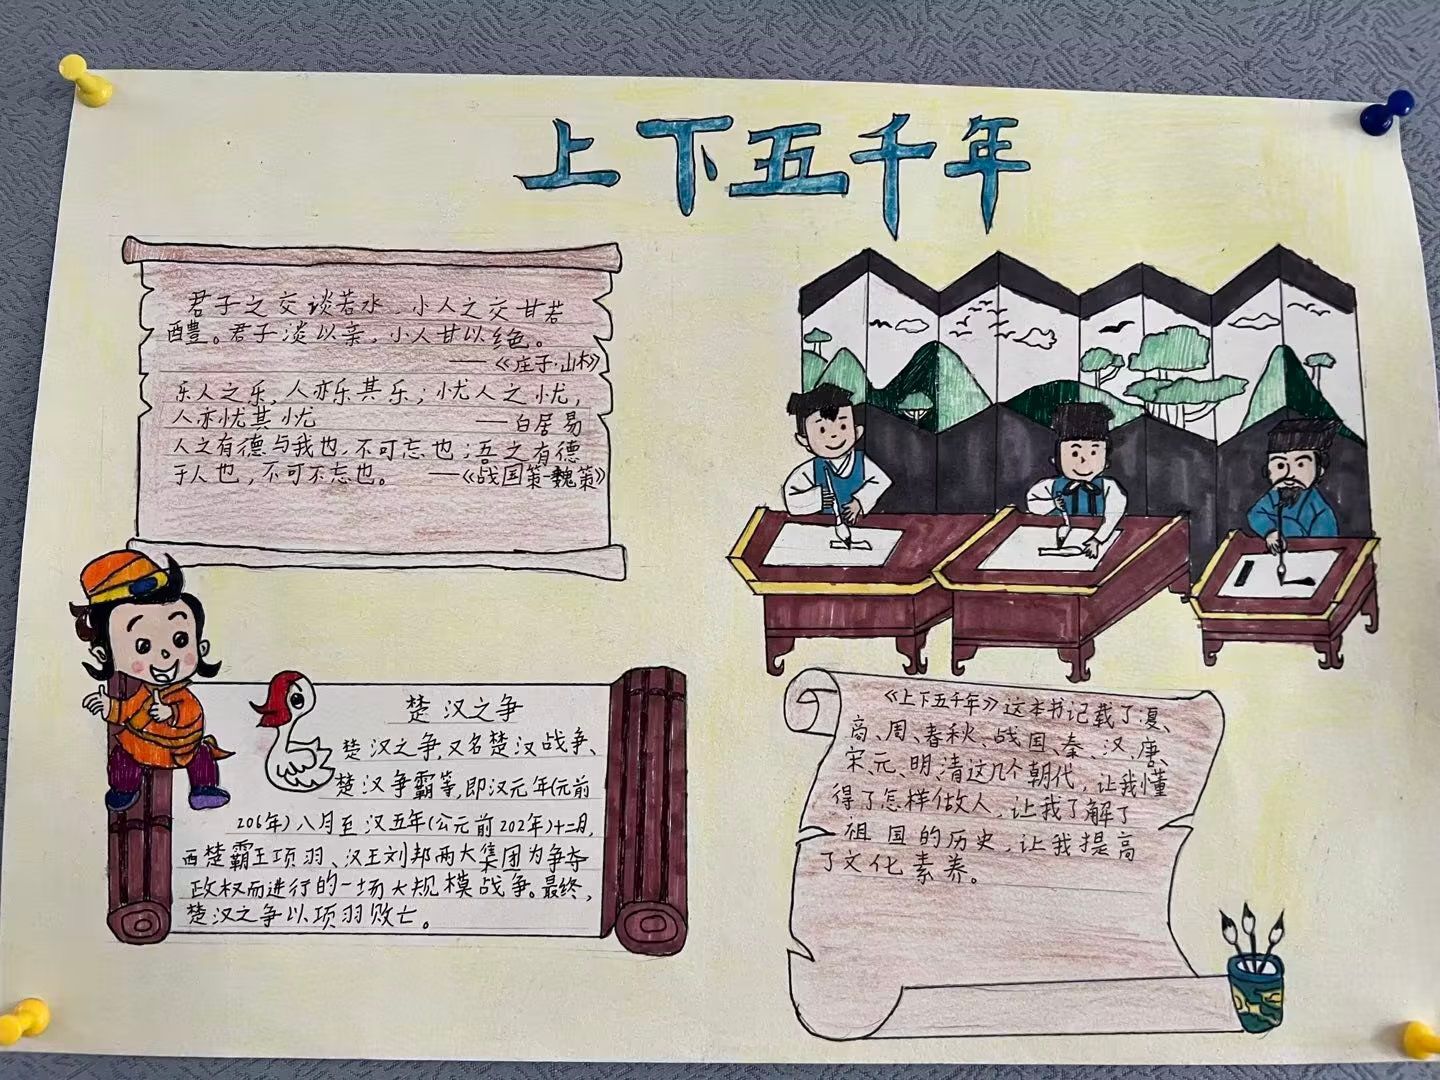 上下五千年
君子之交谈若水，小人之交甘若
醴。君子淡以亲，小人甘以绝。
——《庄子·山木》
乐人之乐，人亦乐其乐；忧人之忧，
人亦忧其忧 ——白居易
人之有德与我也，不可忘也；吾之有德
于人也，不可不忘也。——《战国策·魏策》
楚汉之争
楚汉之争，又名楚汉战争、
楚汉争霸等，即汉元年(元前
206年)八月至汉五年(公元前202年)十二月，
西楚霸王项羽、汉王刘邦两大集团为争夺
政权而进行的一场大规模战争。最终，
楚汉之争以项羽败亡。
《上下五千年》这本书记载了夏、
商、周、春秋、战国、秦、汉、唐、
宋、元、明、清这几个朝代，让我懂
得了怎样做人，让我了解了
祖国的历史，让我提高
了文化素养。